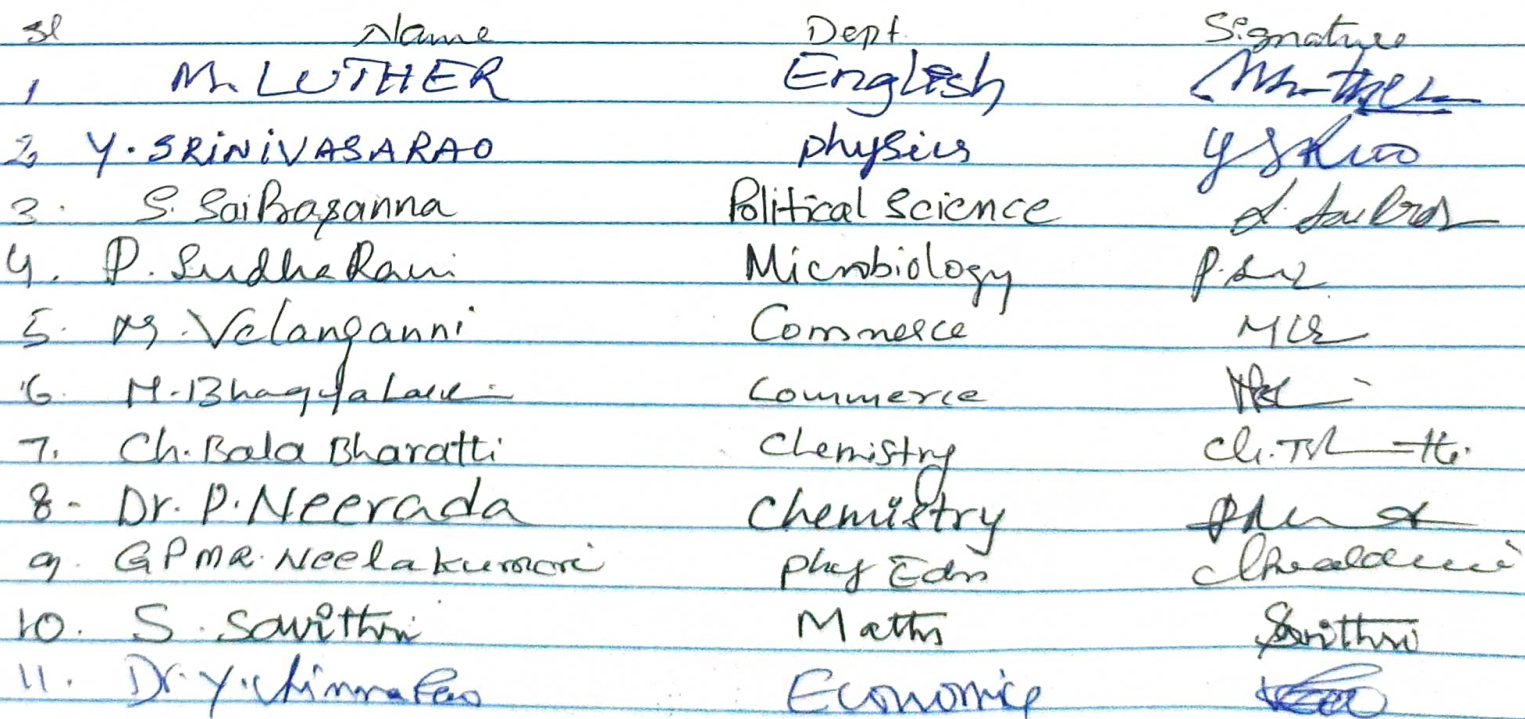 Sl Name Dept. Signature
1 M. LUTHER English
2 Y. SRINIVASARAO Physics Y S Rao
3. S. Sai Prasanna Political Science S. Sai Pras
4. P. Sudha Rani Microbiology
5. M. Velanganni Commerce
6. M. Bhagya Commerce
7. Ch. Bala Bharatti Chemistry
8. Dr. P. Neerada Chemistry
9. G P M R. Neela kumari Phy Edn
10. S. Savithri Maths Savithri
11. Dr. Y. Chinna Rao Economics